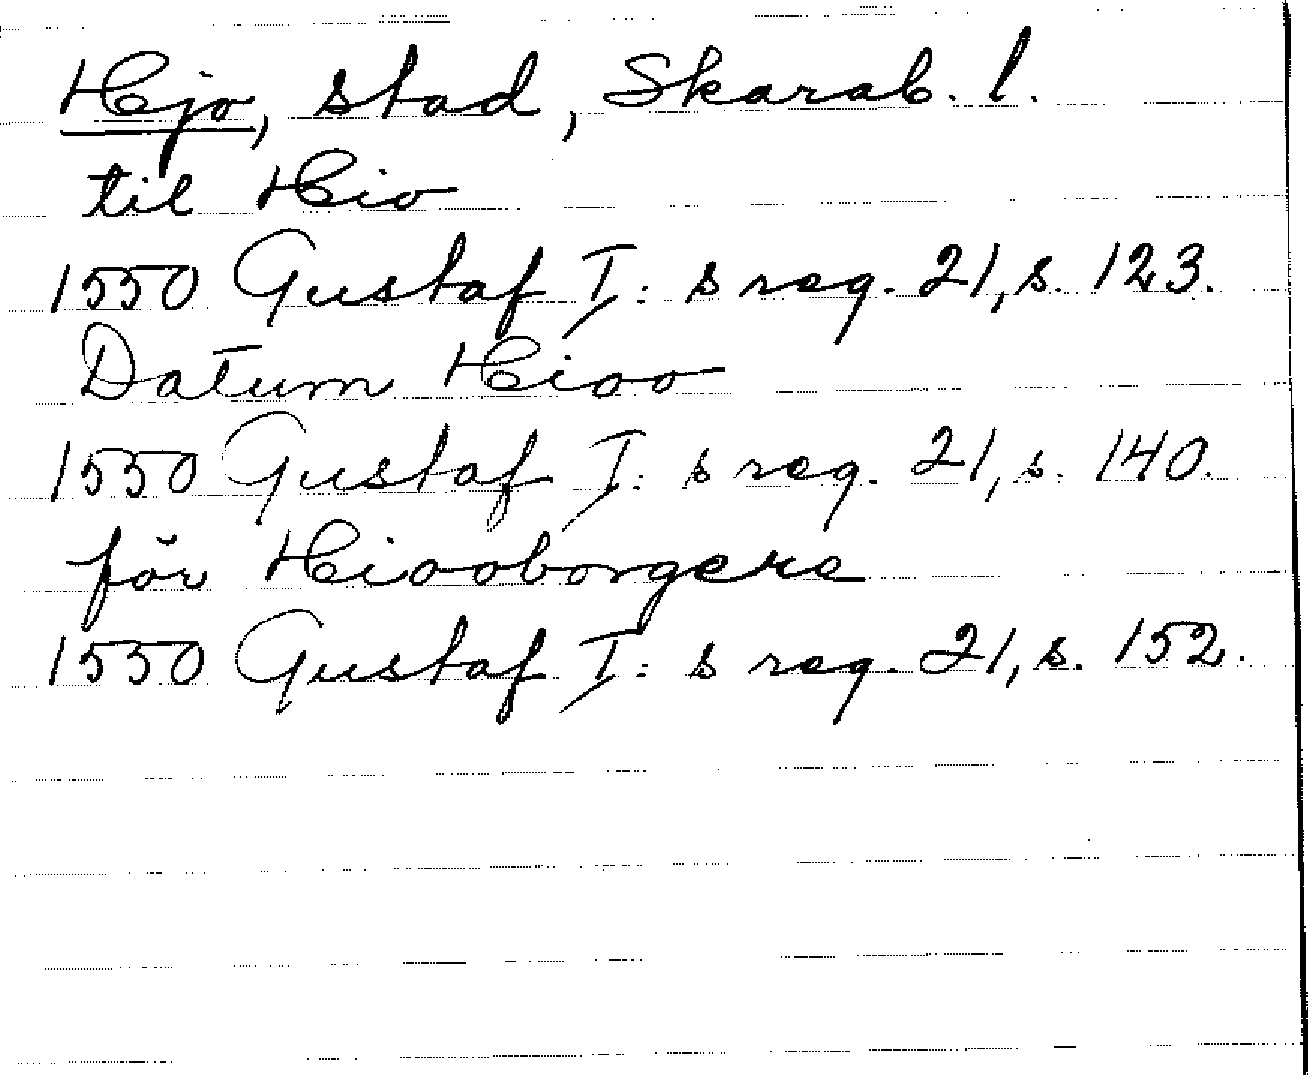 Hjo, stad, Skarab. l.
til Hio
1550 Gustaf I: s reg. 21, s. 123.
Datum Hioo
1550 Gustaf I: s reg. 21, s. 140.
för Hiooborgere
1550 Gustaf I: s reg. 21, s. 152.